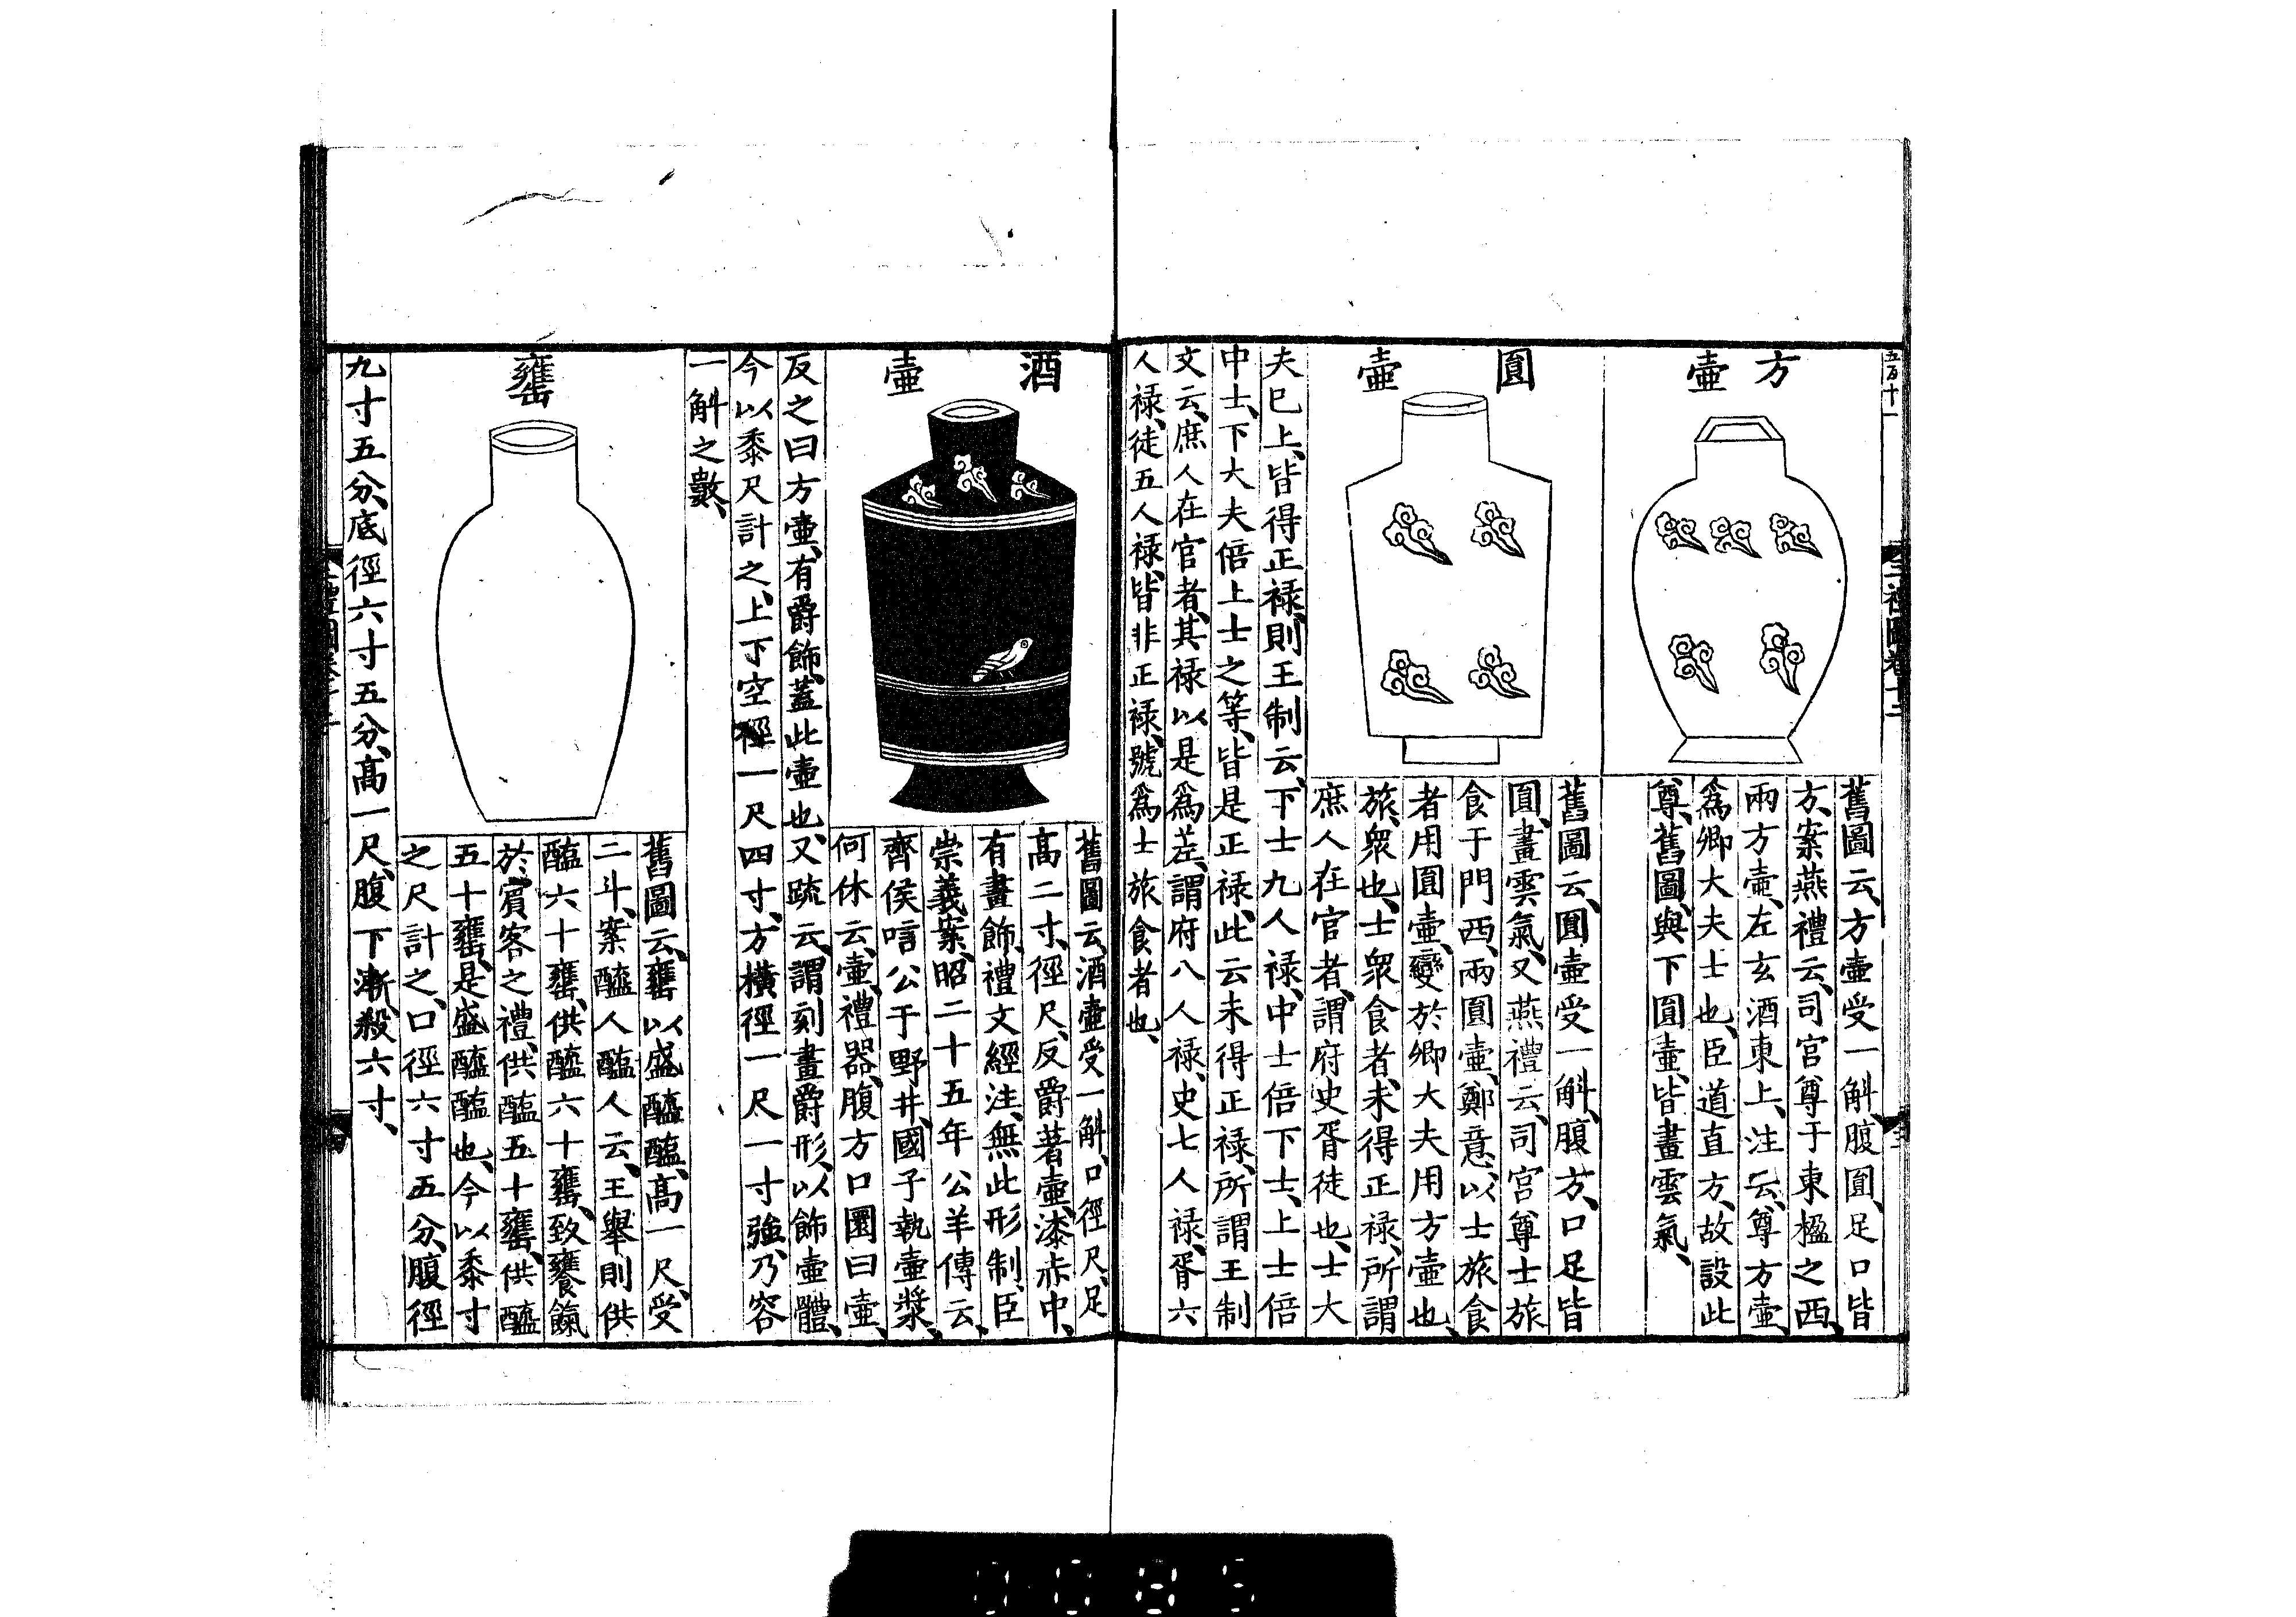 方壺
舊圖云、方壺受一斛、腹圓、足口皆
方、案燕禮云、司宮尊于東楹之西、
兩方壺、左玄酒東上、注云、尊方壺、
爲卿大夫士也、臣道直方、故設此
尊、舊圖、與下圓壺、皆畫雲氣、
圓壺
舊圖云、圓壺受一斛、腹方、口足皆
圓、畫雲氣、又燕禮云、司宮尊士旅
食于門西、兩圓壺、鄭意、以士旅食
者用圓壺、變於卿大夫用方壺也、
旅、衆也、士衆食者、未得正祿、所謂
庶人在官者、謂府史胥徒也、士大
夫已上、皆得正祿、則王制云、下士九人祿、中士倍下士、上士倍
中士、下大夫倍上士之等、皆是正祿、此云未得正祿、所謂王制
文云、庶人在官者、其祿以是爲差、謂府八人祿、史七人祿、胥六
人祿、徒五人祿、皆非正祿、號爲士旅食者也、
酒壺
舊圖云、酒壺受一斛、口徑尺、足
高二寸、徑尺、反爵著壺、漆赤中、
有畫飾、禮文經注、無此形制、臣
崇義案、昭二十五年公羊傳云、
齊侯唁公于野井、國子執壺漿、
何休云、壺、禮器、腹方口圜曰壺、
反之曰方壺、有爵飾、蓋此壺也、又疏云、謂刻畫爵形、以飾壺體、
今以黍尺計之、上下空徑一尺四寸、方橫徑一尺一寸強、乃容
一斛之數、
罋
舊圖云、罋以盛醯醢、高一尺、受
二斗、案醯人醢人云、王舉則供
醢六十罋、供醯六十罋、致饔餼
於賓客之禮、供醢五十罋、供醯
五十罋、是盛醯醢也、今以黍寸
之尺計之、口徑六寸五分、腹徑
九寸五分、底徑六寸五分、高一尺、腹下漸殺六寸、